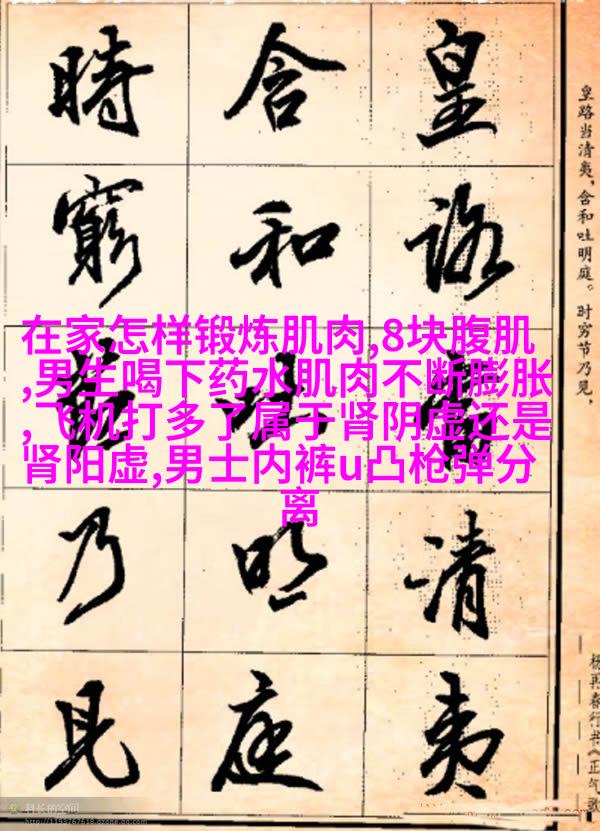 皇路当清夷，含和吐明庭。时穷节乃见，
杨再春行书《正气歌
皇路當清夷
含和吐明庭
時窮節乃見
在家怎样锻炼肌肉,8块腹肌
,男生喝下药水肌肉不断膨胀
,飞机打多了属于肾阴虚还是
肾阳虚,男士内裤u凸枪弹分
离
科长的空间